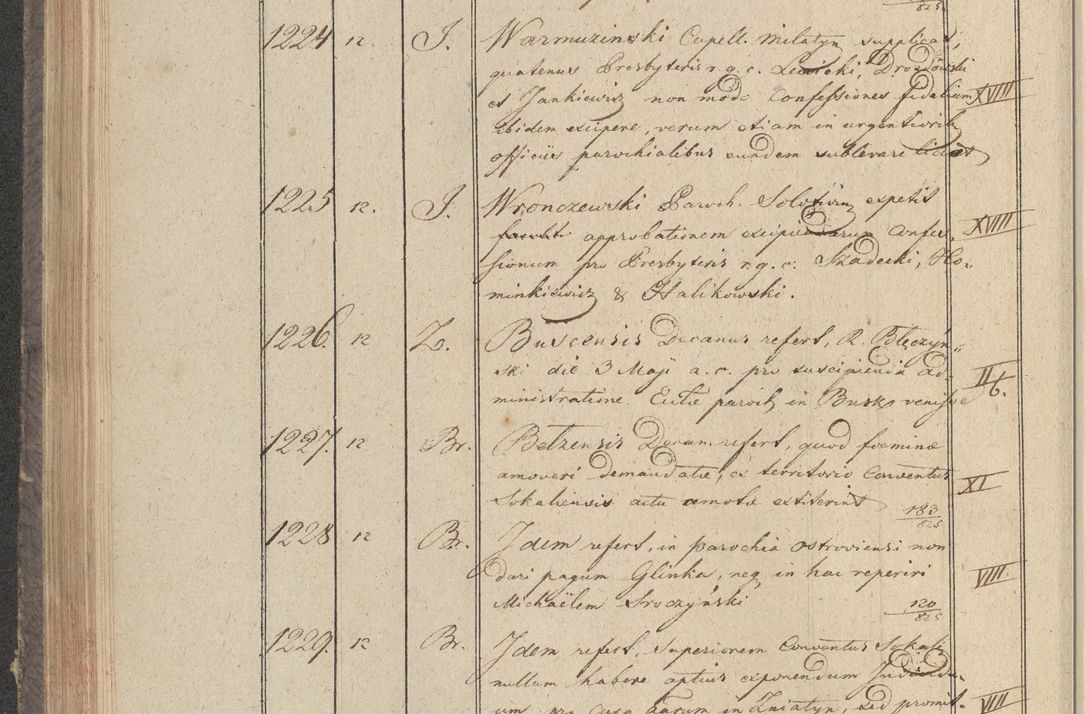 825
1224 12 J. Warmuzinski Capell. Milatyn supplicat,
quatenus Presbyteris r. g. c. Lewicki, Drozdowski
et Jankiewicz non modo Confessiones fidelium XVIII
ibidem excipere, verum etiam in urgentiorib
officiis parochialibus eundem sublevare liceat
1225 12. J. Wronczewski Paroch. Solotwin expetit
approbationem excipiendarum Confes= XVIII
sionum pro Presbyteris r. g. c. Szadecki, Ho=
minkiewicz & Halikowski.
1226. 12 Z. Buscensis Decanus refert, R. Błęczyń=
ski die 3 Maji a. c. pro suscipienda ad= II
ministratione Eccliæ paroch in Busk venisse 6.
1227. 12 Br. Betzensis Decan. refert, quod foeminæ
amoveri demandatæ, ex territorio Conventus XI
Sokaliensis actu amotæ extiterint 183
825
1228 12 Br. Idem refert, in parochia Ostroviensi non
dari pagum Glinka, neq in hac reperiri VIII.
Michaëlem Sroczyński 120
825
1229. 12 Br. Idem refert, Superiorem Conventus Sokal:
nullum habere aptius exponendum Individu=
um pro Cura Zniatyn, sed promit= VIII